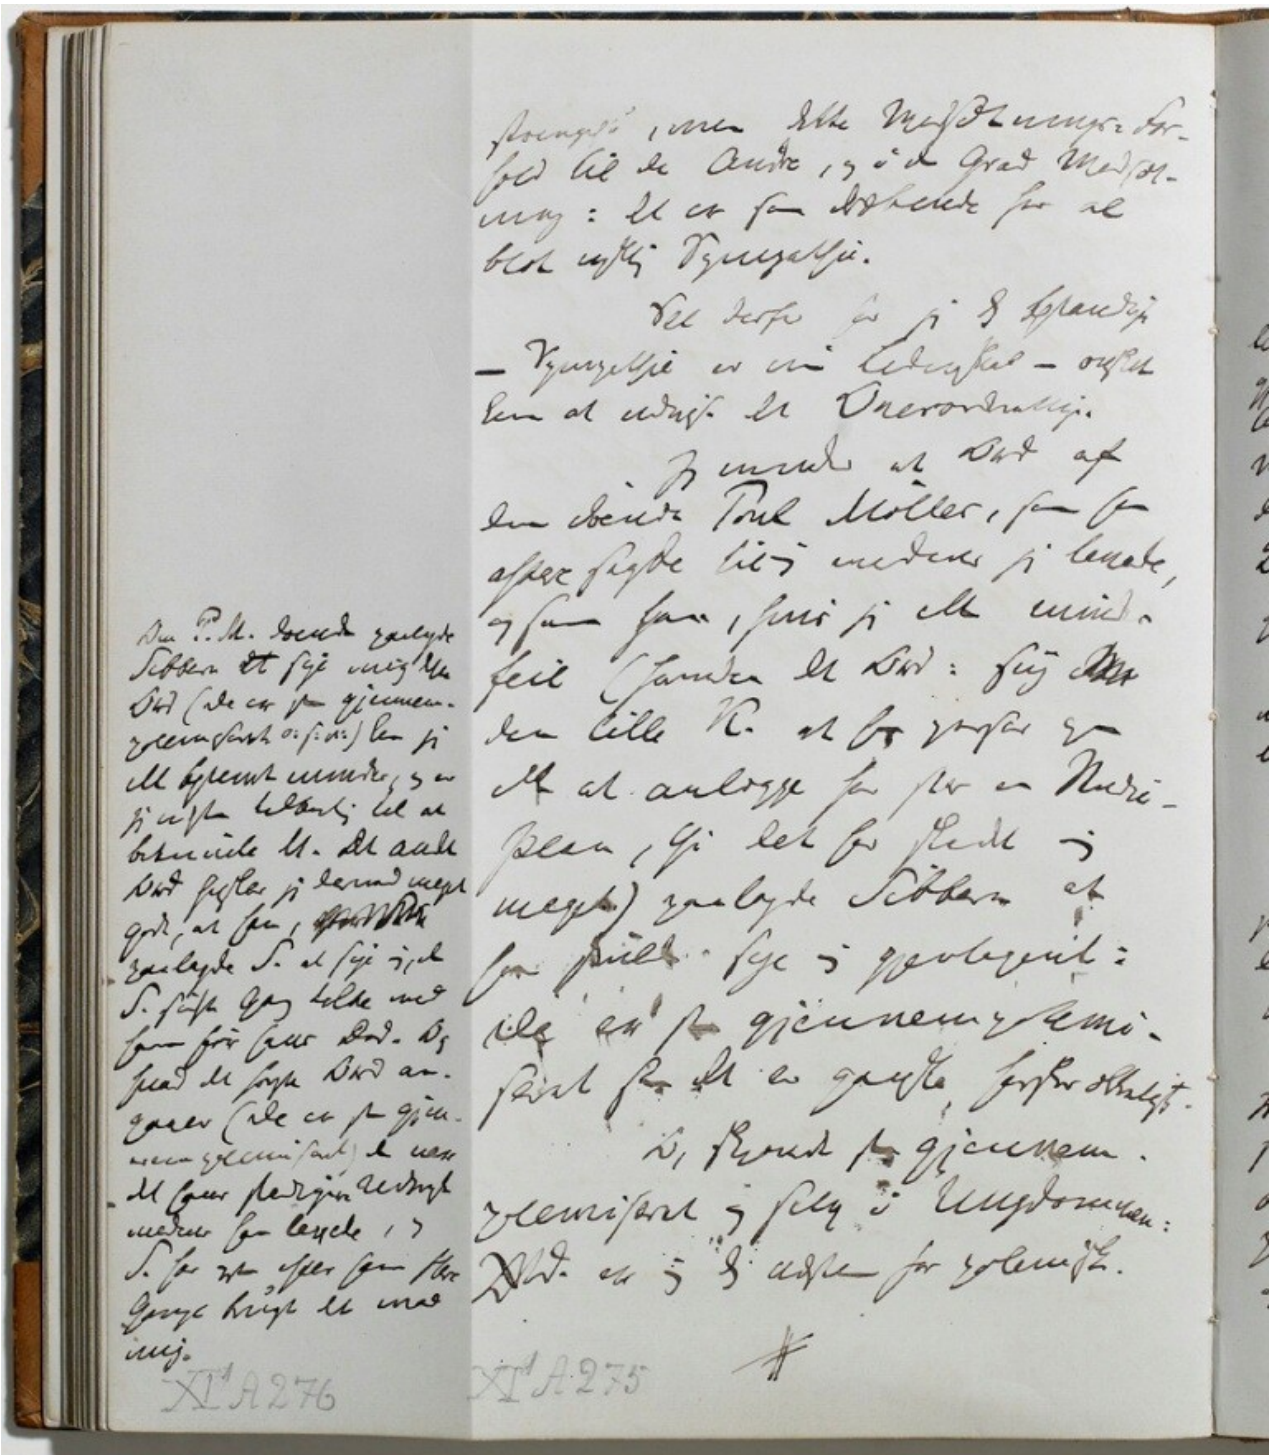 strengelse, men dette Modsætnings-For-
hold til de Andre, og i den Grad Modsæt-
ning: det er saa dræbende for al
blot
Sympathie.
Vel derfor har jeg dog bestandigt
– Sympathie er min Lidenskab – ønsket
kun at udtrykke det Overordentlige.
Jeg mindes et Ord af
den døende Poul Møller, som han
oftere sagde til mig medens han levede,
og som han, hvis jeg ikke minder
feil (foruden det Ord: siig
den lille K. at han passer paa
ikke at anlægge for stor en Studie-
Plan, thi det har skadet mig
meget) paalagde Sibbern at
han skulde sige mig gjentagent:
De er saa gjennempolemi-
seret saa det er ganske forskrækkeligt.
O, skjøndt saa gjennem-
polemiseret mig selv i Ungdommen:
er mig dog næsten for polemisk.
Om P. M. døende paalagde
Sibbern at sige mig dette
Ord (De er saa gjennem-
polemiseret o: s: v:) kan jeg
ikke bestemt mindes, og er
jeg næsten tilbøielig til at
betvivle det. Det andet
Ord husker jeg derimod meget
godt, at han,
paalagde S. at sige mig, da
S. sidste Gang talte med
ham før hans Død. Og
hvad det første Ord an-
gaaer (De er saa gjen-
nempolemiseret) da var
det hans stadigere Udsagn
medens han levede, og
S. har ogsaa efter ham flere
Gange brugt det mod
mig.
XI¹ A 276
XI¹ A 275